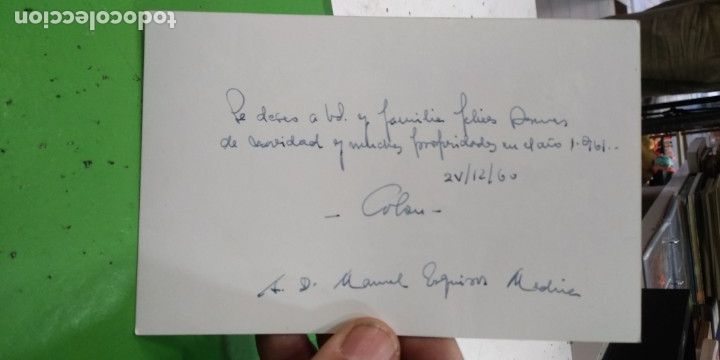 todocoleccion
todocoleccion.net
Le deseo a Vd. y familia felices Pascuas
de navidad y muchas prosperidades en el año 1.961..
24/12/60
- Colau -
A. D. Manuel Esquivos Medina